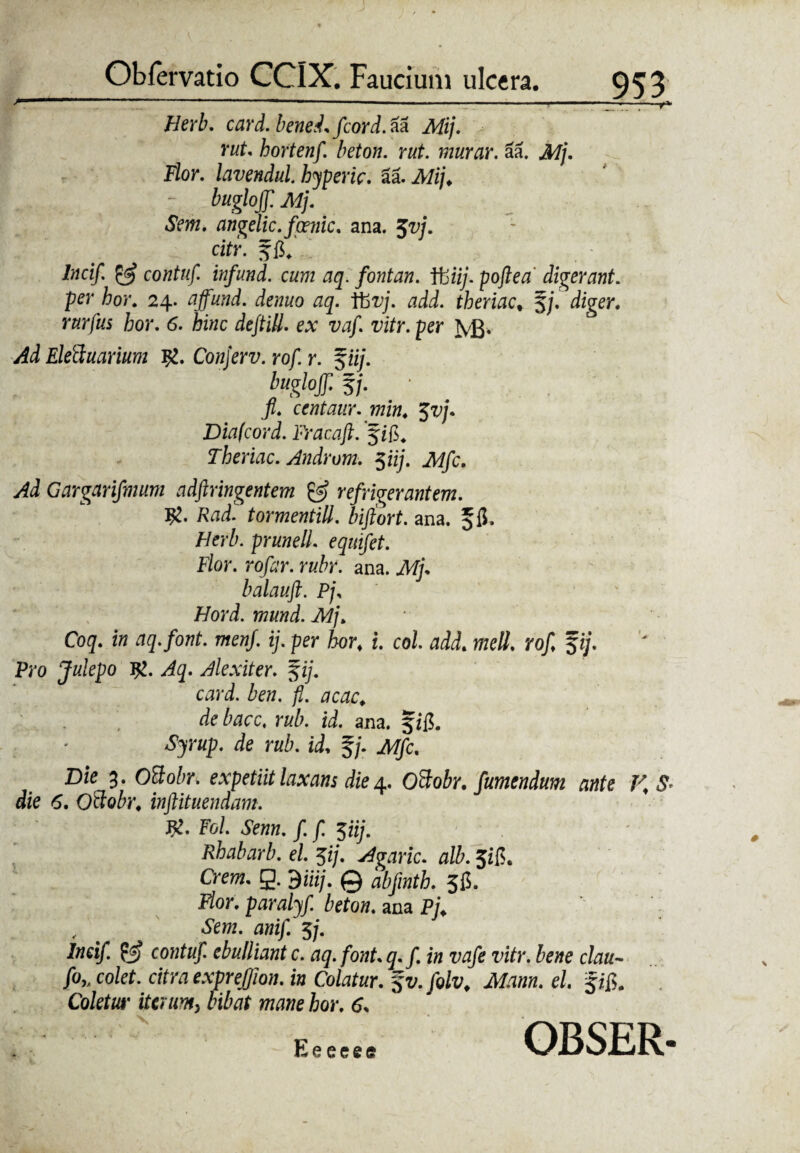 Obſervatio CCIX. Faucium ulcera. 953
Herb. card. bened. ſcord. āā Mij.
rut. hortenſ. beton. rut. murar. āā. Mj.
Flor. lavendul. hyperic. āā. Mij.
bugloſſ. Mj.
Sem. angelic. fœnic. ana. ʒvj.
citr. ℥ß.
Inciſ. & contuſ. infund. cum aq. fontan. ℔iij. poſtea digerant.
per hor. 24. affund. denuo aq. ℔vj. add. theriac. ℥j. diger.
rurſus hor. 6. hinc deſtill. ex vaſ. vitr. per MB.
Ad Electuarium ℞. Conſerv. roſ. r. ℥iij.
bugloſſ. ℥j.
fl. centaur. min. ʒvj.
Diaſcord. Fracaſt. ℥iß.
Theriac. Androm. ʒiij. Mſc.
Ad Gargariſmum adſtringentem & refrigerantem.
℞. Rad. tormentill. biſtort. ana. ℥ß.
Herb. prunell. equiſet.
Flor. roſar. rubr. ana. Mj.
balauſt. Pj.
Hord. mund. Mj.
Coq. in aq. font. menſ. ij. per hor. i. col. add. mell. roſ. ℥ij.
Pro Julepo ℞. Aq. Alexiter. ℥ij.
card. ben. fl. acac.
de bacc. rub. id. ana. ℥iß.
Syrup. de rub. id. ℥j. Mſc.
Die 3. Octobr. expetiit laxans die 4. Octobr. ſumendum ante V. S.
die 6. Octobr. inſtituendam.
℞. Fol. Senn. ſ. ſ. ʒiij.
Rhabarb. el. ʒij. Agaric. alb. ʒiß.
Crem. 🜿. ℈iiij. 🜔 abſinth. ʒß.
Flor. paralyſ. beton. ana Pj.
Sem. aniſ. ʒj.
Inciſ. & contuſ. ebulliant c. aq. font. q. ſ. in vaſe vitr. bene clau-
ſo, colet. citra expreſſion. in Colatur. ℥v. ſolv. Mann. el. ℥iß.
Coletur iterum, bibat mane hor. 6.
Eeeeee OBSER-